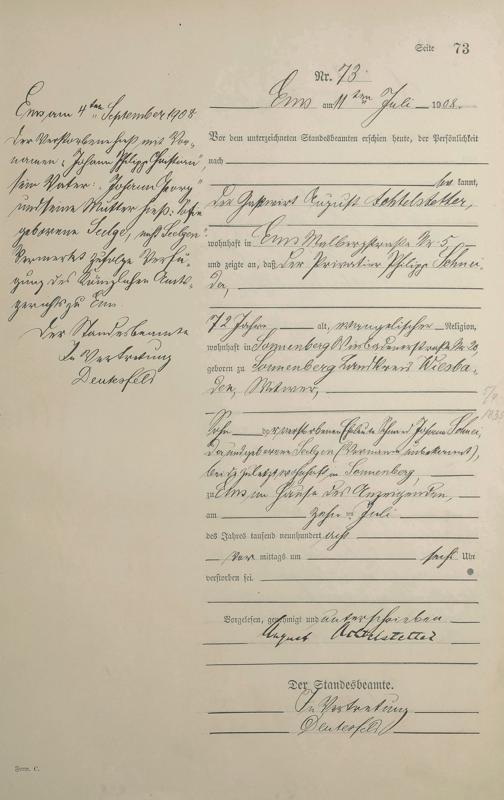 Seite 73
Nr. 73.
Ems am 11ten Juli 1908.
Vor dem unterzeichneten Standesbeamten erschien heute, der Persönlichkeit
nach
kannt,
der Gastwirt August Achtelstetter,
wohnhaft in Ems Malbergstraße Nr. 5,
und zeigte an, daß der Privatier Philipp Schnei-
da,
72 Jahre alt, evangelischer Religion,
wohnhaft in Sonnenberg Nr. 20,
geboren zu Sonnenberg Landkreis Wiesba-
den, Witwer,
Sohn der verstorbenen Eheleute Johann Schnei-
da und geborene Seelgen (Vorname unbekannt),
beide zuletzt wohnhaft in Sonnenberg,
zu Ems im Hause des Anzeigenden,
am zehn Juli
des Jahres tausend neunhundert acht
Vor mittags um sechs Uhr
verstorben sei.
Vorgelesen, genehmigt und unterschrieben
August Achtelstetter
Der Standesbeamte.
In Vertretung
Deutesfeld
Ems, am 4ten September 1908.
Der Verstorbene hieß mit Vor-
namen „Johann Philipp
sein Vater: „Johann Georg“
und seine Mutter hieß:
geborene Seelge, nicht Seelgen“
Vermerkt zufolge Verfü-
gung des Königlichen Amts-
gerichts zu Ems.
Der Standesbeamte
In Vertretung
Deutesfeld
Form. C.